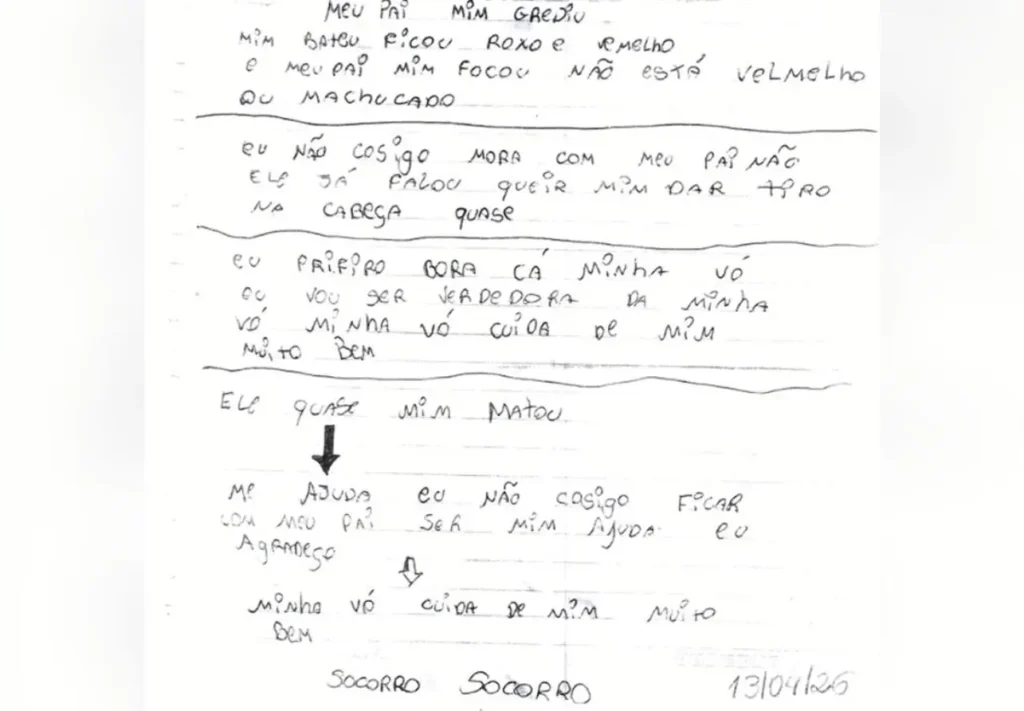 MEU PAI MIM GREDIU
MIM BATEU FICOU ROXO E VEMELHO
E MEU PAI MIM FOCOU NÃO ESTÁ VELMELHO
OU MACHUCADO
EU NÃO COSIGO MORA COM MEU PAI NÃO
ELE JÁ FALOU QUEIR MIM DAR TIRO
NA CABEÇA QUASE
EU PRIFIRO BORA CÁ MINHA VÓ
OU VOU SER VERDEDORA DA MINHA
VÓ MINHA VÓ CUIDA DE MIM
MUITO BEM
ELE QUASE MIM MATOU
ME AJUDA EU NÃO COSIGO FICAR
COM MEU PAI SER MIM AJUDA EU
AGRADEÇO
MINHA VÓ CUIDA DE MIM MUITO
BEM
SOCORRO SOCORRO
13/04/26